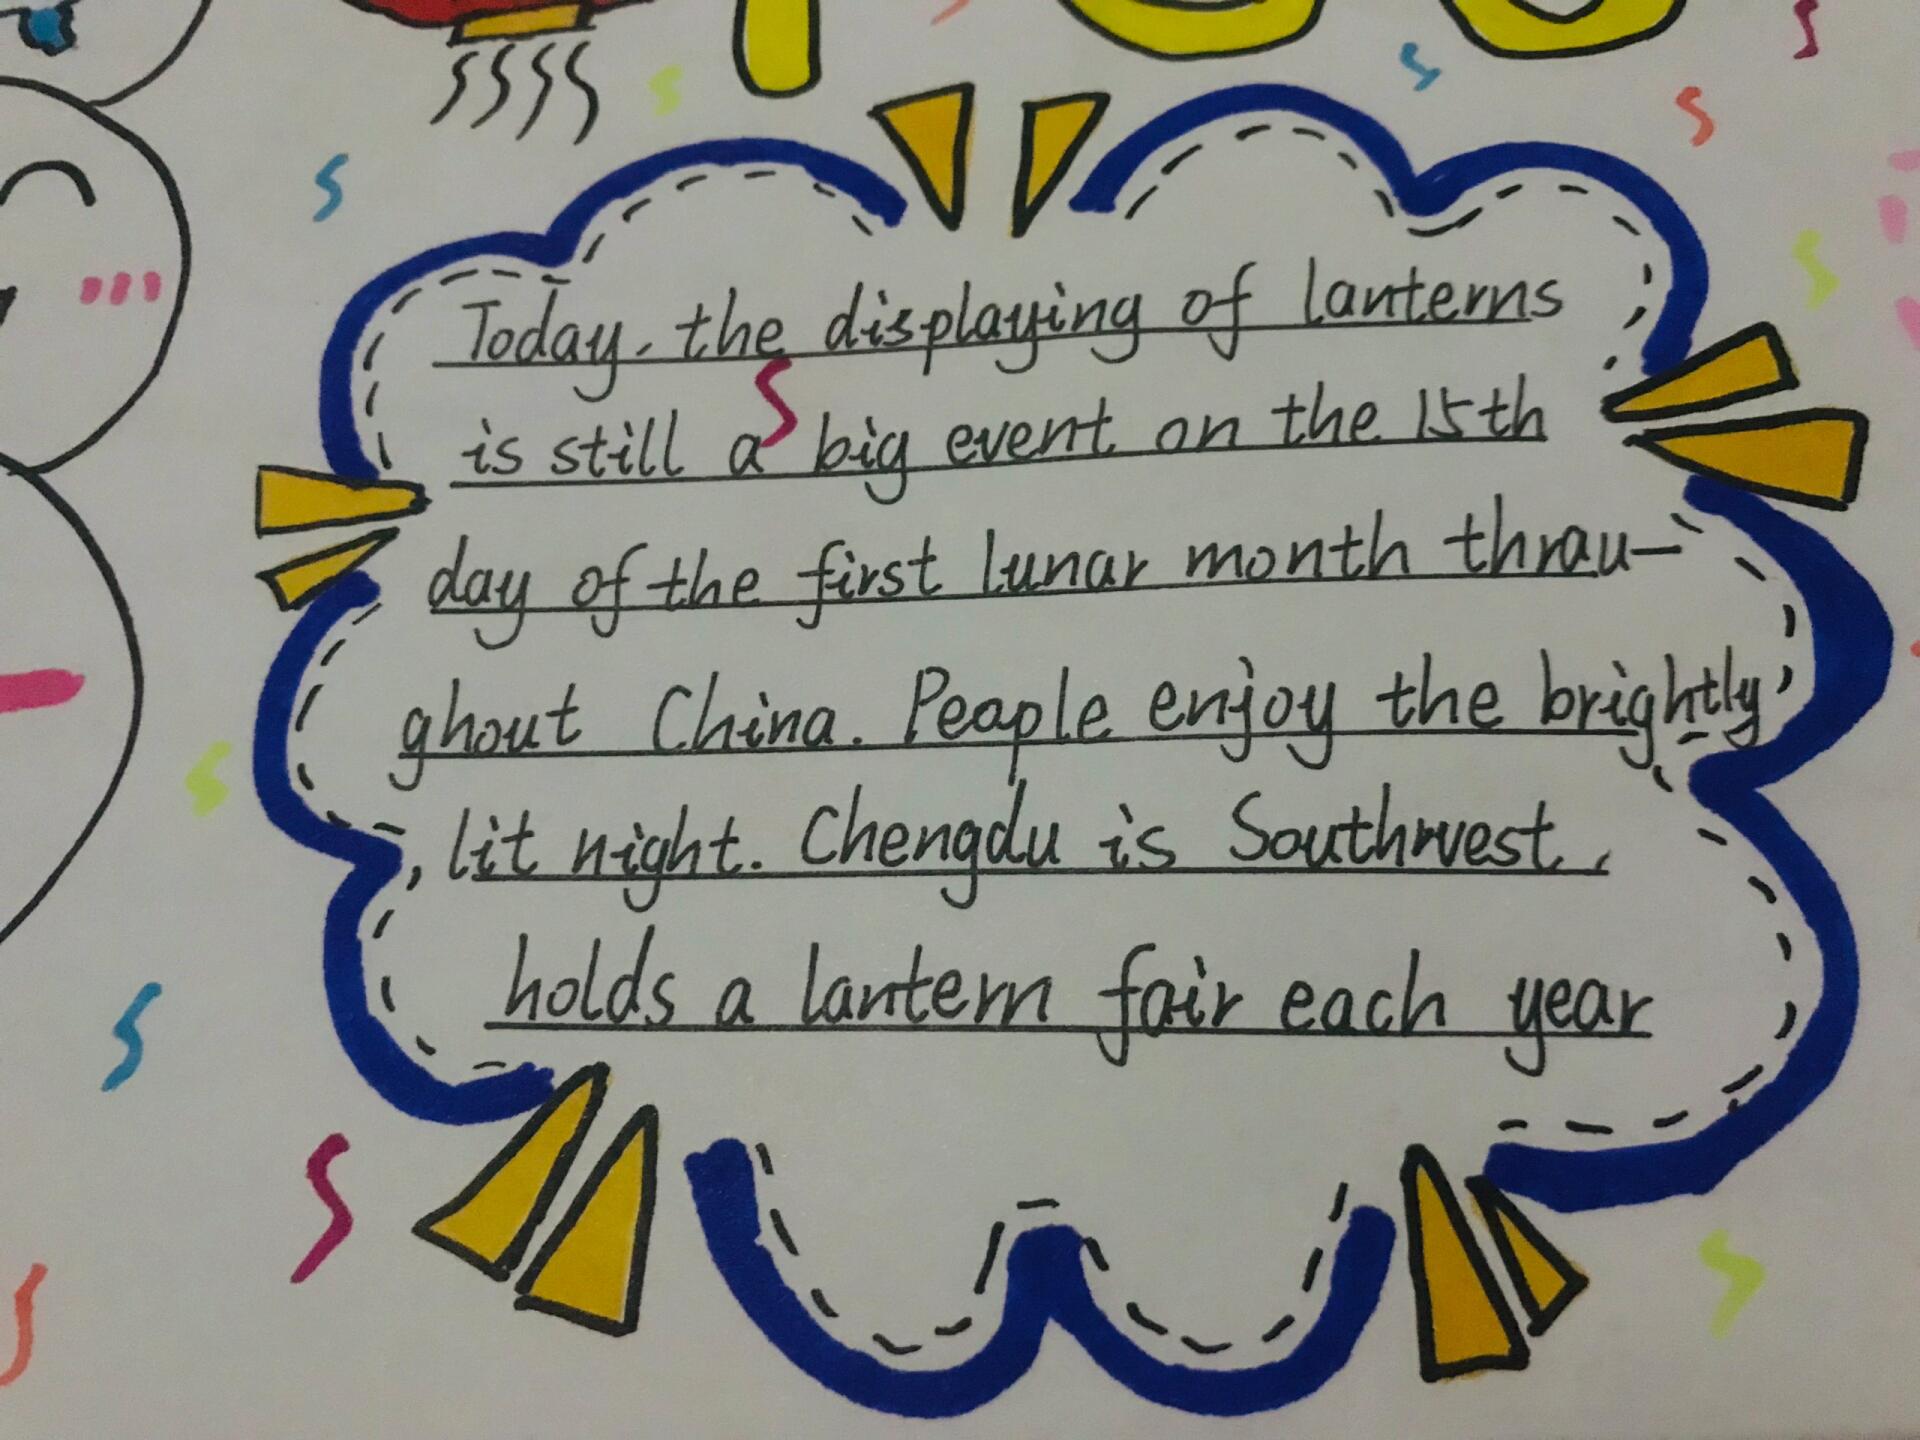 Today, the displaying of lanterns
is still a big event on the 15th
day of the first lunar month throu-
ghout China. People enjoy the brightly
lit night. Chengdu is Southwest,
holds a lantern fair each year